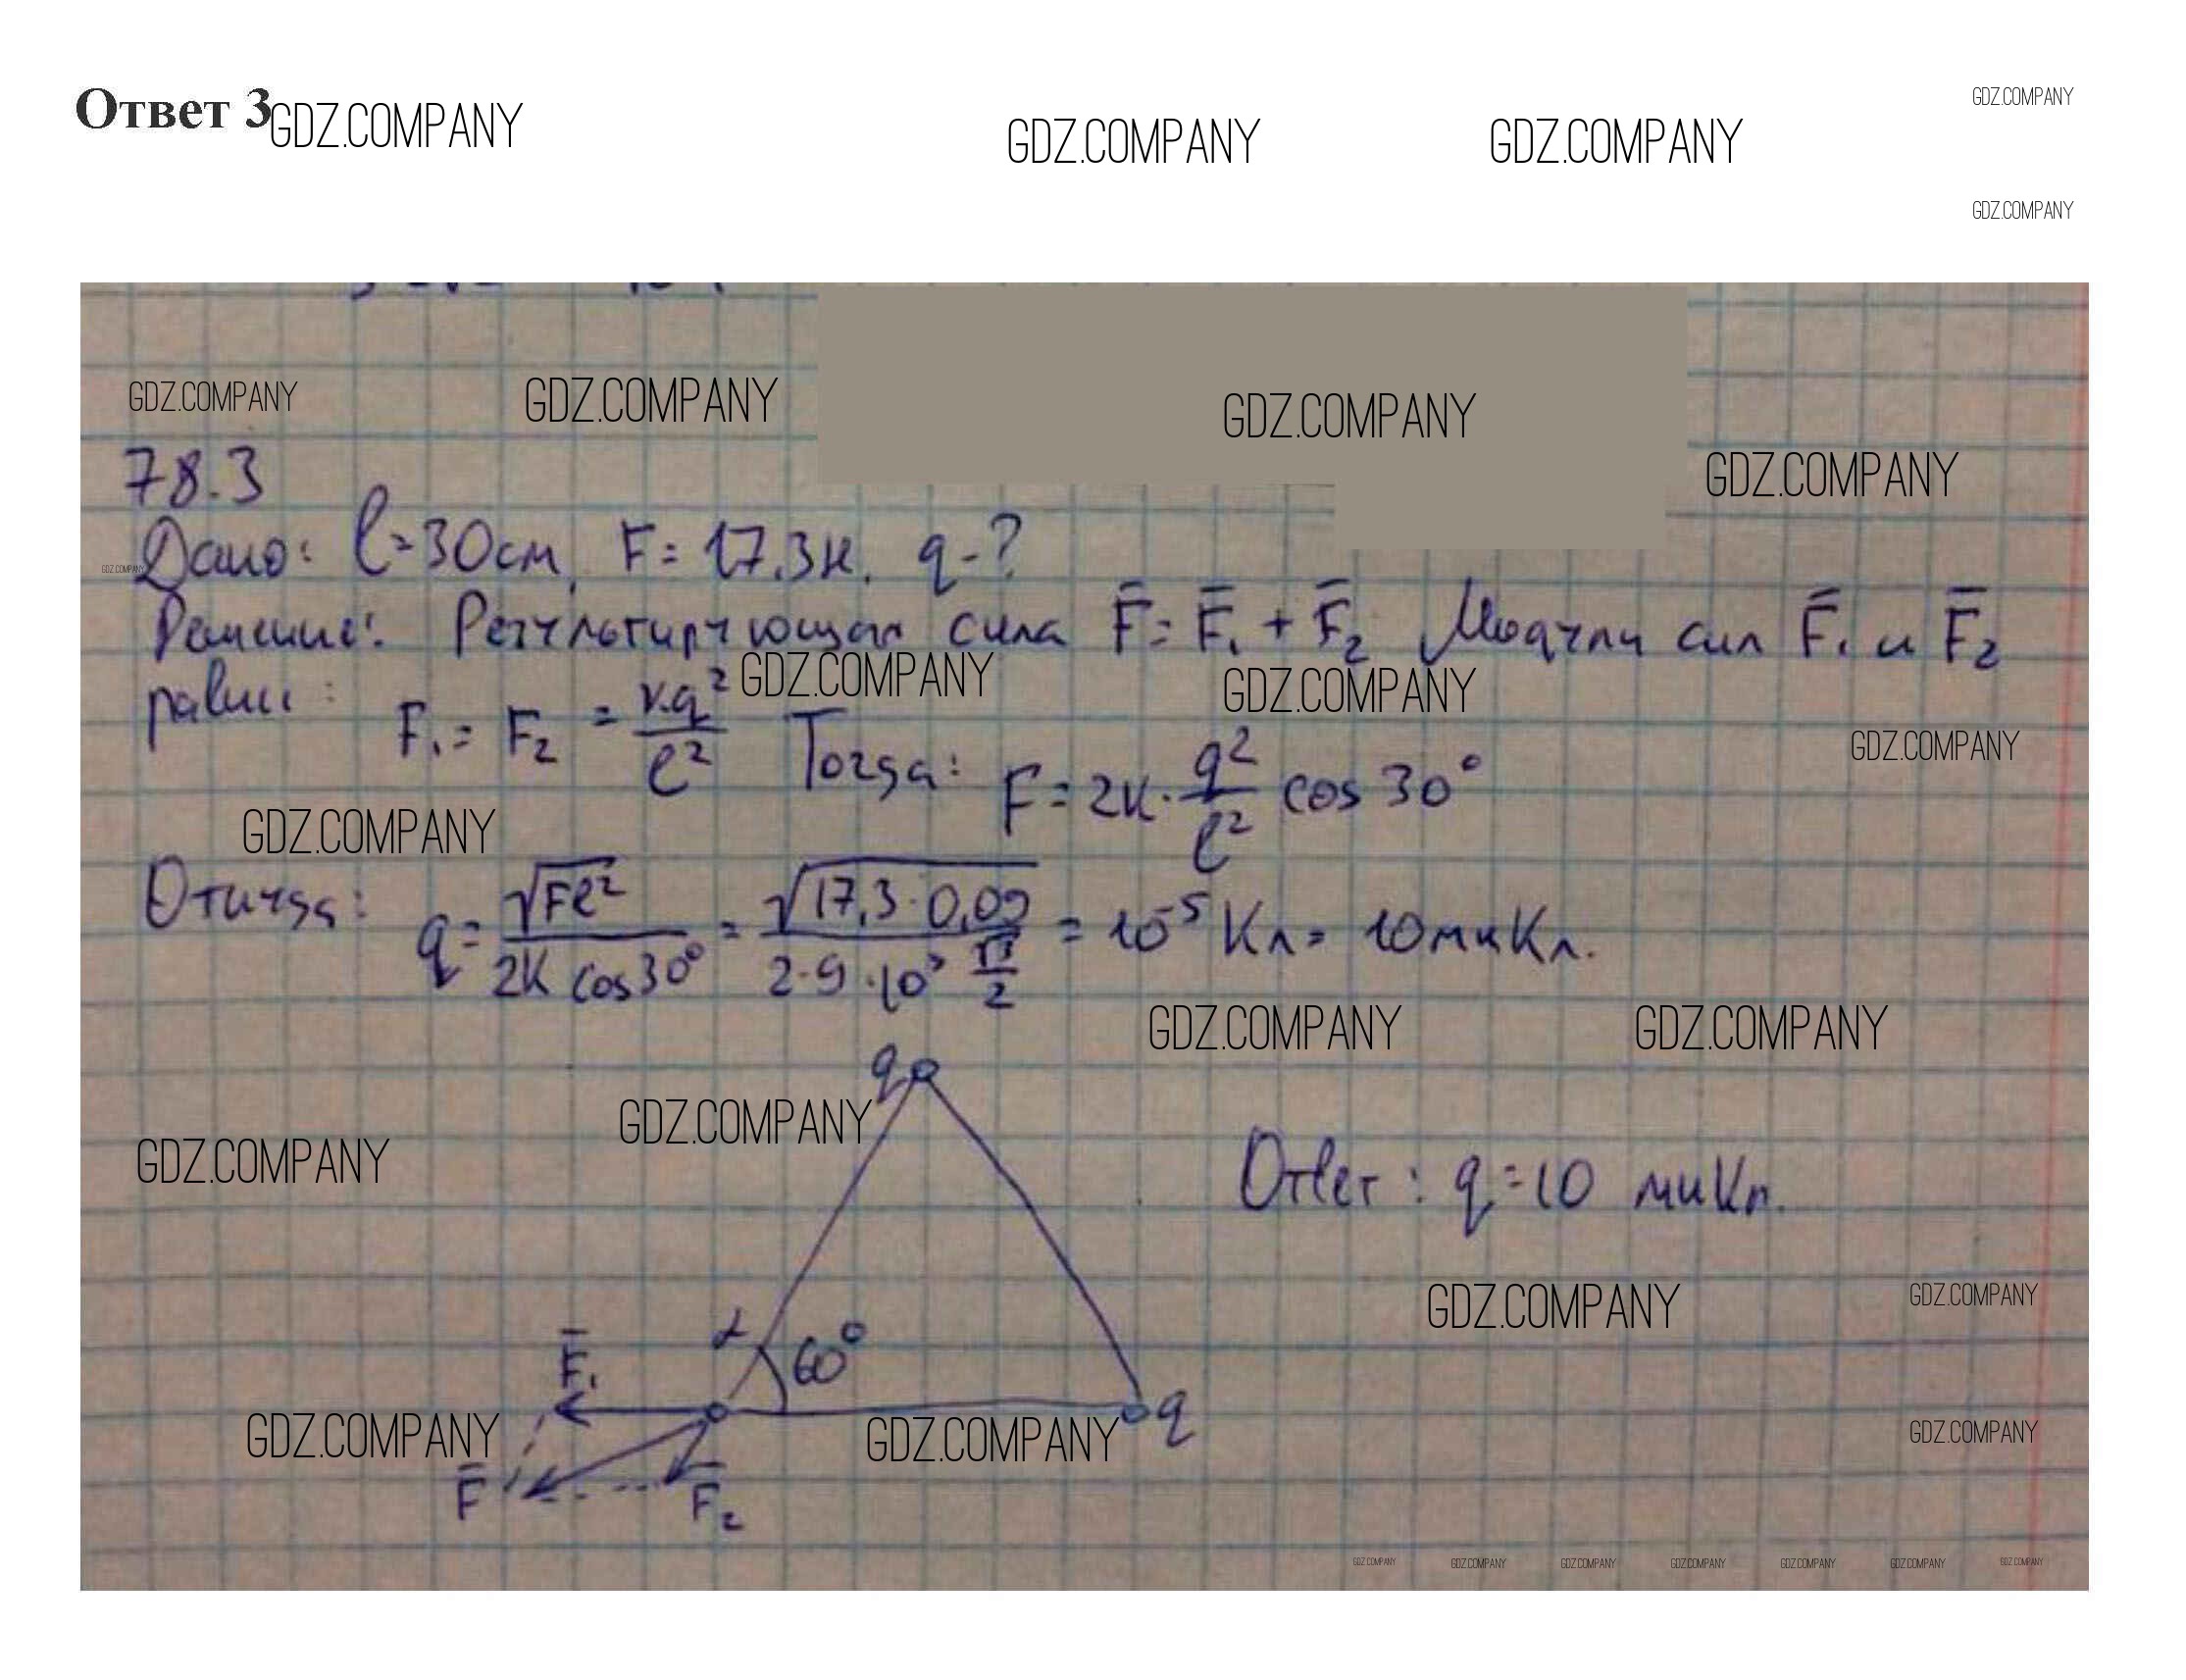 Ответ 3
GDZ.COMPANY
GDZ.COMPANY
GDZ.COMPANY
GDZ.COMPANY
GDZ.COMPANY
GDZ.COMPANY
GDZ.COMPANY
GDZ.COMPANY
GDZ.COMPANY
78.3
Дано: l=30см, F=17,3н, q-?
GDZ.COMPANY
Решение: Результирующая сила F̄=F̄₁+F̄₂ Модули сил F̄₁ и F̄₂
равны: F₁=F₂=к·q²/l² Тогда: F=2к·q²/l² cos 30°
GDZ.COMPANY
GDZ.COMPANY
GDZ.COMPANY
GDZ.COMPANY
Откуда: q=√Fl²/2к cos30°=√17,3·0,09/2·9·10⁹ √3/2=10⁻⁵Кл=10мкКл.
GDZ.COMPANY
GDZ.COMPANY
q
GDZ.COMPANY
GDZ.COMPANY
Ответ: q=10 мкКл.
GDZ.COMPANY
GDZ.COMPANY
α
60°
F̄₁
q
GDZ.COMPANY
GDZ.COMPANY
GDZ.COMPANY
F̄
F̄₂
GDZ.COMPANY
GDZ.COMPANY
GDZ.COMPANY
GDZ.COMPANY
GDZ.COMPANY
GDZ.COMPANY
GDZ.COMPANY